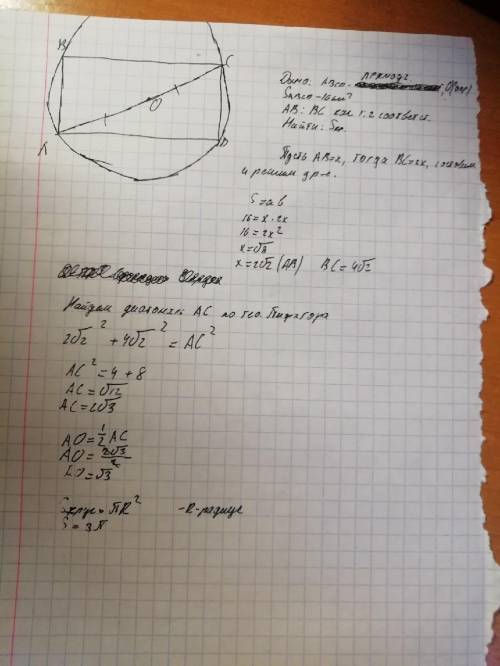 B
C
O
A
D
Дано: ABCD - прямоуг, O(окр)
SABCD - 16 см²
AB : BC как 1:2 соответст.
Найти: Sкр.
Пусть AB=x, тогда BC=2x, составим
и решим ур-е.
S=ab
16=x·2x
16=2x²
x=√8
x=2√2 (AB) BC=4√2
Найдем диагональ AC по тео. Пифагора
2√2² + 4√2² = AC²
AC²=4+8
AC=√12
AC=2√3
AO=½AC
AO=2√3/2
AO=√3
Sкруг=ПR² -R-радиус
S=3П